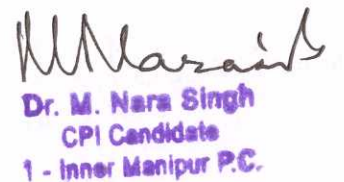 M Nara Singh
Dr. M. Nara Singh
CPI Candidate
1 - Inner Manipur P.C.